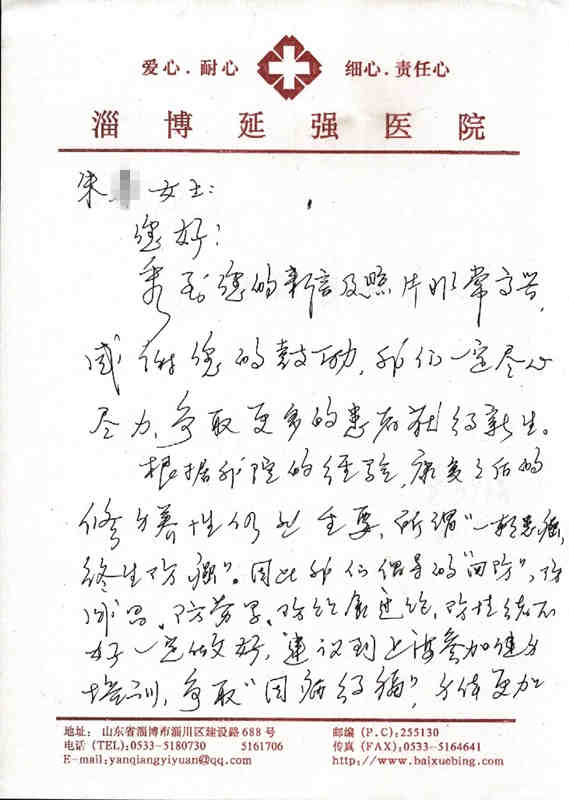 爱心.耐心 细心.责任心
淄博延强医院
朱 女士:
您好!
看到您的新信及照片非常高兴,
感谢您的鼓励,我们一定尽心
尽力,争取更多的患者获得新生。
根据我院的经验,康复之后的
修身养性仍至重要,所谓"一朝患癌,
终生防癌"。因此我们倡导的"四防",防
感冒、防劳累、防饮食,防情绪不
好一定做好,建议到上海参加健身
培训,争取"因病得福",身体更加
地址: 山东省淄博市淄川区建设路688号 邮编(P.C):255130
电话(TEL):0533-5180730 5161706 传真(FAX):0533-5164641
E-mail:yanqiangyiyuan@qq.com http://www.baixuebing.com